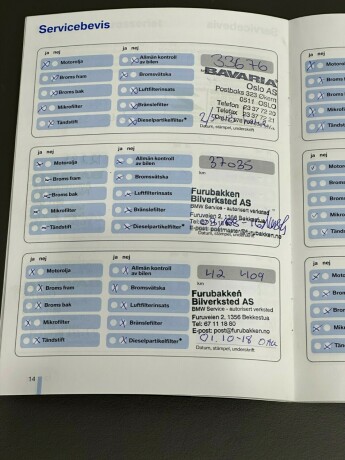 Servicebevis
ja nej
ja nej
Motorolja
Allmän kontroll
av bilen
33676
Broms fram
Bromsvätska
BAVARIA
Oslo AS
Postboks 323 Økern
0511 OSLO
Broms bak
Luftfilterinsats
Mikrofilter
Bränslefilter
Telefon
Telefax
Tändstift
Dieselpartikelfilter*
Datum, stämpel, underskrift
ja nej
ja nej
Motorolja
Allmän kontroll
av bilen
37035
km
Broms fram
Bromsvätska
Broms bak
Luftfilterinsats
Furubakken
Bilverksted AS
BMW Service - autorisert verksted
Mikrofilter
Bränslefilter
Furuveien 2, 1356 Bekkestua
Tändstift
Dieselpartikelfilter*
ja nej
ja nej
Motorolja
Allmän kontroll
av bilen
42 409
km
Broms fram
Bromsvätska
Furubakken
Bilverksted AS
BMW Service - autorisert verksted
Broms bak
Luftfilterinsats
Furuveien 2, 1356 Bekkestua
Tel: 67 11 18 80
Mikrofilter
Bränslefilter
E-post: post@furubakken.no
01.10-18
Tändstift
Dieselpartikelfilter*
Datum, stämpel, underskrift
14